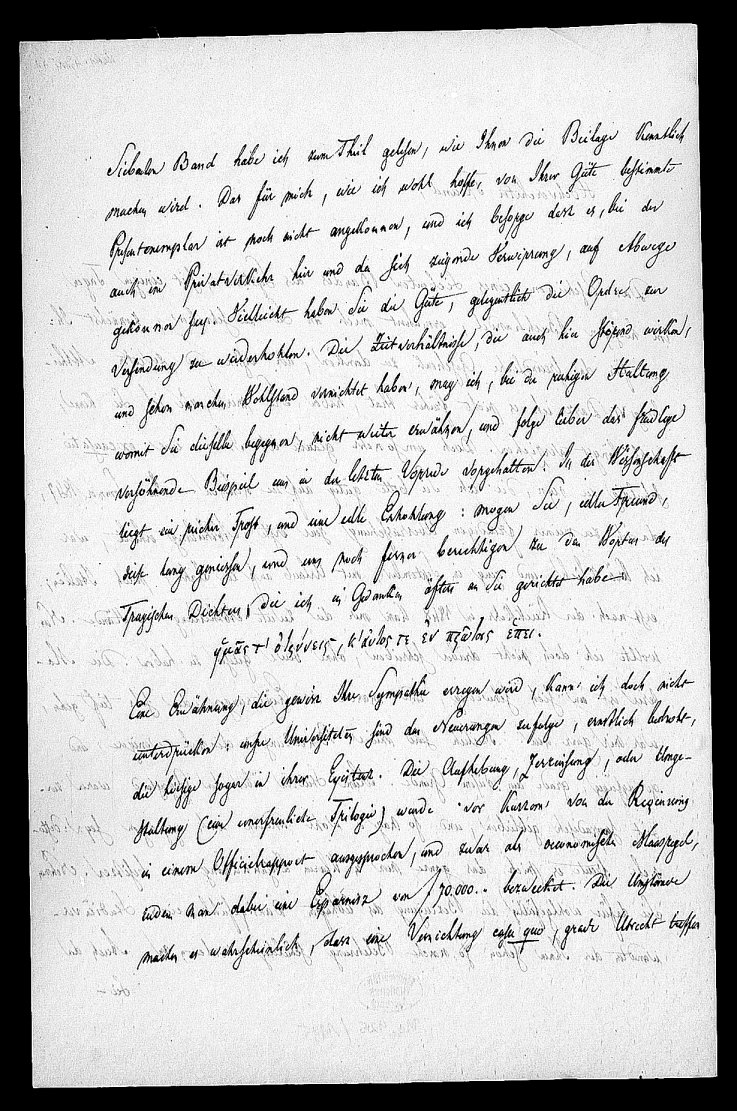 Siebenten Band habe ich zum Theil gelesen, wie Ihnen die Beilage kenntlich
machen wird. Das für mich, wie ich wohl hoffe, von Ihrer Güte bestimmte
Präsentexemplar ist noch nicht angekommen, und ich besorge dass es, bei der
auch im Privatverkehr hie und da sich zeigende Verwirrung, auf Abwege
gekommen sey. Vielleicht haben Sie die Güte, gelegentlich die Ordre zur
Versendung zu wiederhohlen. Die Zeitverhältnisse, die auch hier störend wirken,
und schon manchen Wohlstand vernichtet haben, mag ich, bei der ruhigen Haltung
womit Sie dieselbe begegnen, nicht weiter erwähnen, und folge lieber das
versöhnende Beispiel uns in der letzten Vorrede vorgehalten. In der Wissenschaft
liegt ein reicher Trost, und eine edle Erhohlung: mogen Sie, edler Freund,
sie lang geniessen, und uns noch ferner berechtigen zu den Worten des
Tragischen Dichters, die ich in Gedanken öfters an Sie gerichtet habe
ἡμᾶς τ' ὀτρύνεις, κ' αὐτὸς τε ἐν πρῶτοις ἕπει.
Eine Erwähnung, die gewiss Ihre Sympathie erregen wird, kann ich doch nicht
unterdrücken: unsre Universiteten sind den Neuerungen zufolge, ernstlich bedroht,
die hiesige sogar in ihrer Existenz. Die Aufhebung, Zerreissung, oder Umge-
staltung (eine unerfreuliche Trilogie) wurde vor Kurzem von der Regierung
in einem Officielrapport ausgesprochen, und zwar als oeconomische Maasregel,
indem man dabei eine Ersparniss von f 70.000.- bezwecket. Die Umstände
machen es wahrscheinlich, dass eine Vernichtung casu quo, grade Utrecht treffen